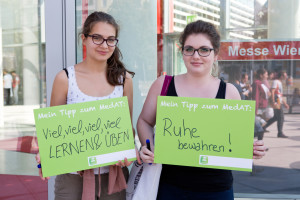 Messe Wien
Mein Tipp zum MedAT:
Viel, viel, viel, viel
LERNEN & ÜBEN
Mein Tipp zum MedAT:
Ruhe
bewahren!